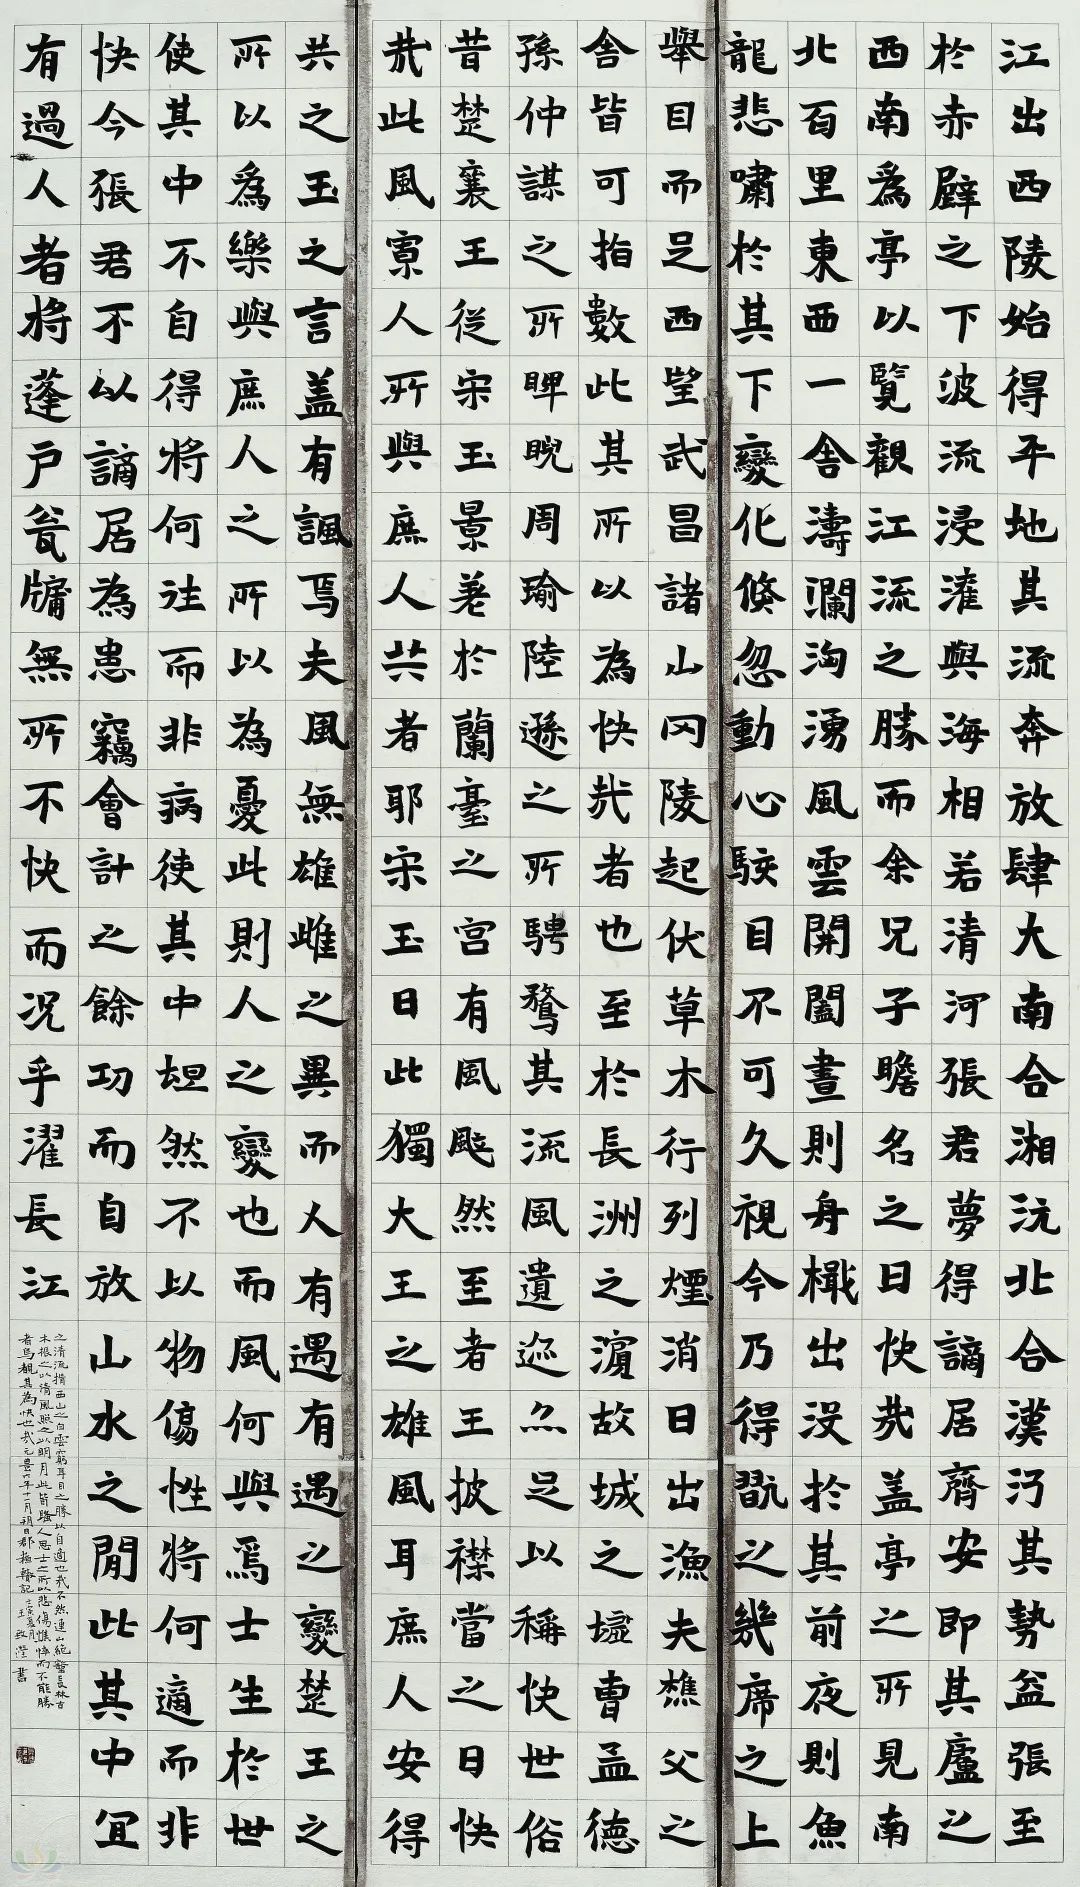 江出西陵始得平地其流奔放肆大南合湘沅北合漢沔其勢益張至
於赤壁之下波流浸灌與海相若清河張君夢得謫居齊安即其廬之
西南爲亭以覽觀江流之勝而余兄子瞻名之曰快哉盖亭之所見南
北百里東西一舍濤瀾洶湧風雲開闔晝則舟檝出没於其前夜則魚
龍悲嘯於其下變化倏忽動心駭目不可久視今乃得翫之幾席之上
舉目而足西望武昌諸山岡陵起伏草木行列煙消日出漁夫樵父之
舍皆可指數此其所以為快哉者也至於長洲之濱故城之墟曹孟德
孫仲謀之所睥睨周瑜陸遜之所騁騖其流風遺迹亦足以稱快世俗
昔楚襄王從宋玉景差於蘭臺之宮有風颯然至者王披襟當之曰快
哉此風寡人所與庶人共者耶宋玉曰此獨大王之雄風耳庶人安得
共之玉之言盖有諷焉夫風無雄雌之異而人有遇有遇之變楚王之
所以爲樂與庶人之所以為憂此則人之變也而風何與焉士生於世
使其中不自得將何往而非病使其中坦然不以物傷性將何適而非
快今張君不以謫居為患竊會計之餘功而自放山水之間此其中宜
有過人者將蓬戶甕牖無所不快而況乎濯長江
之清流揖西山之白雲窮耳目之勝以自適也哉不然連山絕壑長林古
木振之以清風照之以明月此皆騷人思士之所以悲傷憔悴而不能勝
者烏覩其為快也哉元豐六年十一月朔日郡蘇轍記壬寅夏月王瀅書